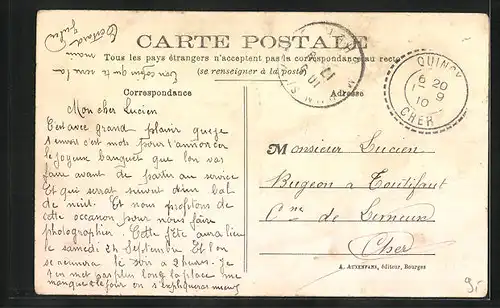 CARTE POSTALE
Tous les pays étrangers n'acceptent pas la correspondance au recto
(se renseigner à la poste)
Correspondance
Adresse
QUINCY
6 20
9
10
CHER
Mon cher Lucien
C'est avec grand plaisir que je
t'envois c'est mots pour t'annoncer
le joyeux banquet que lon vas
faire avant de partir au service
Et qui serat suivit d'un bal
de nuit. Et nous profitons de
cette occasion pour nous faire
photographier. Cette fête aura lieu
le samedi 24 Septembre Et l'on
se reunira ici à 2 heures. Je
t'en met pas plus long la place me
manque le jour on s'expliquera mieux
Monsieur Lucien
Bugeon a Toutifaut
Cne de Limeux
Cher
A. AUXENFANS, éditeur, Bourges